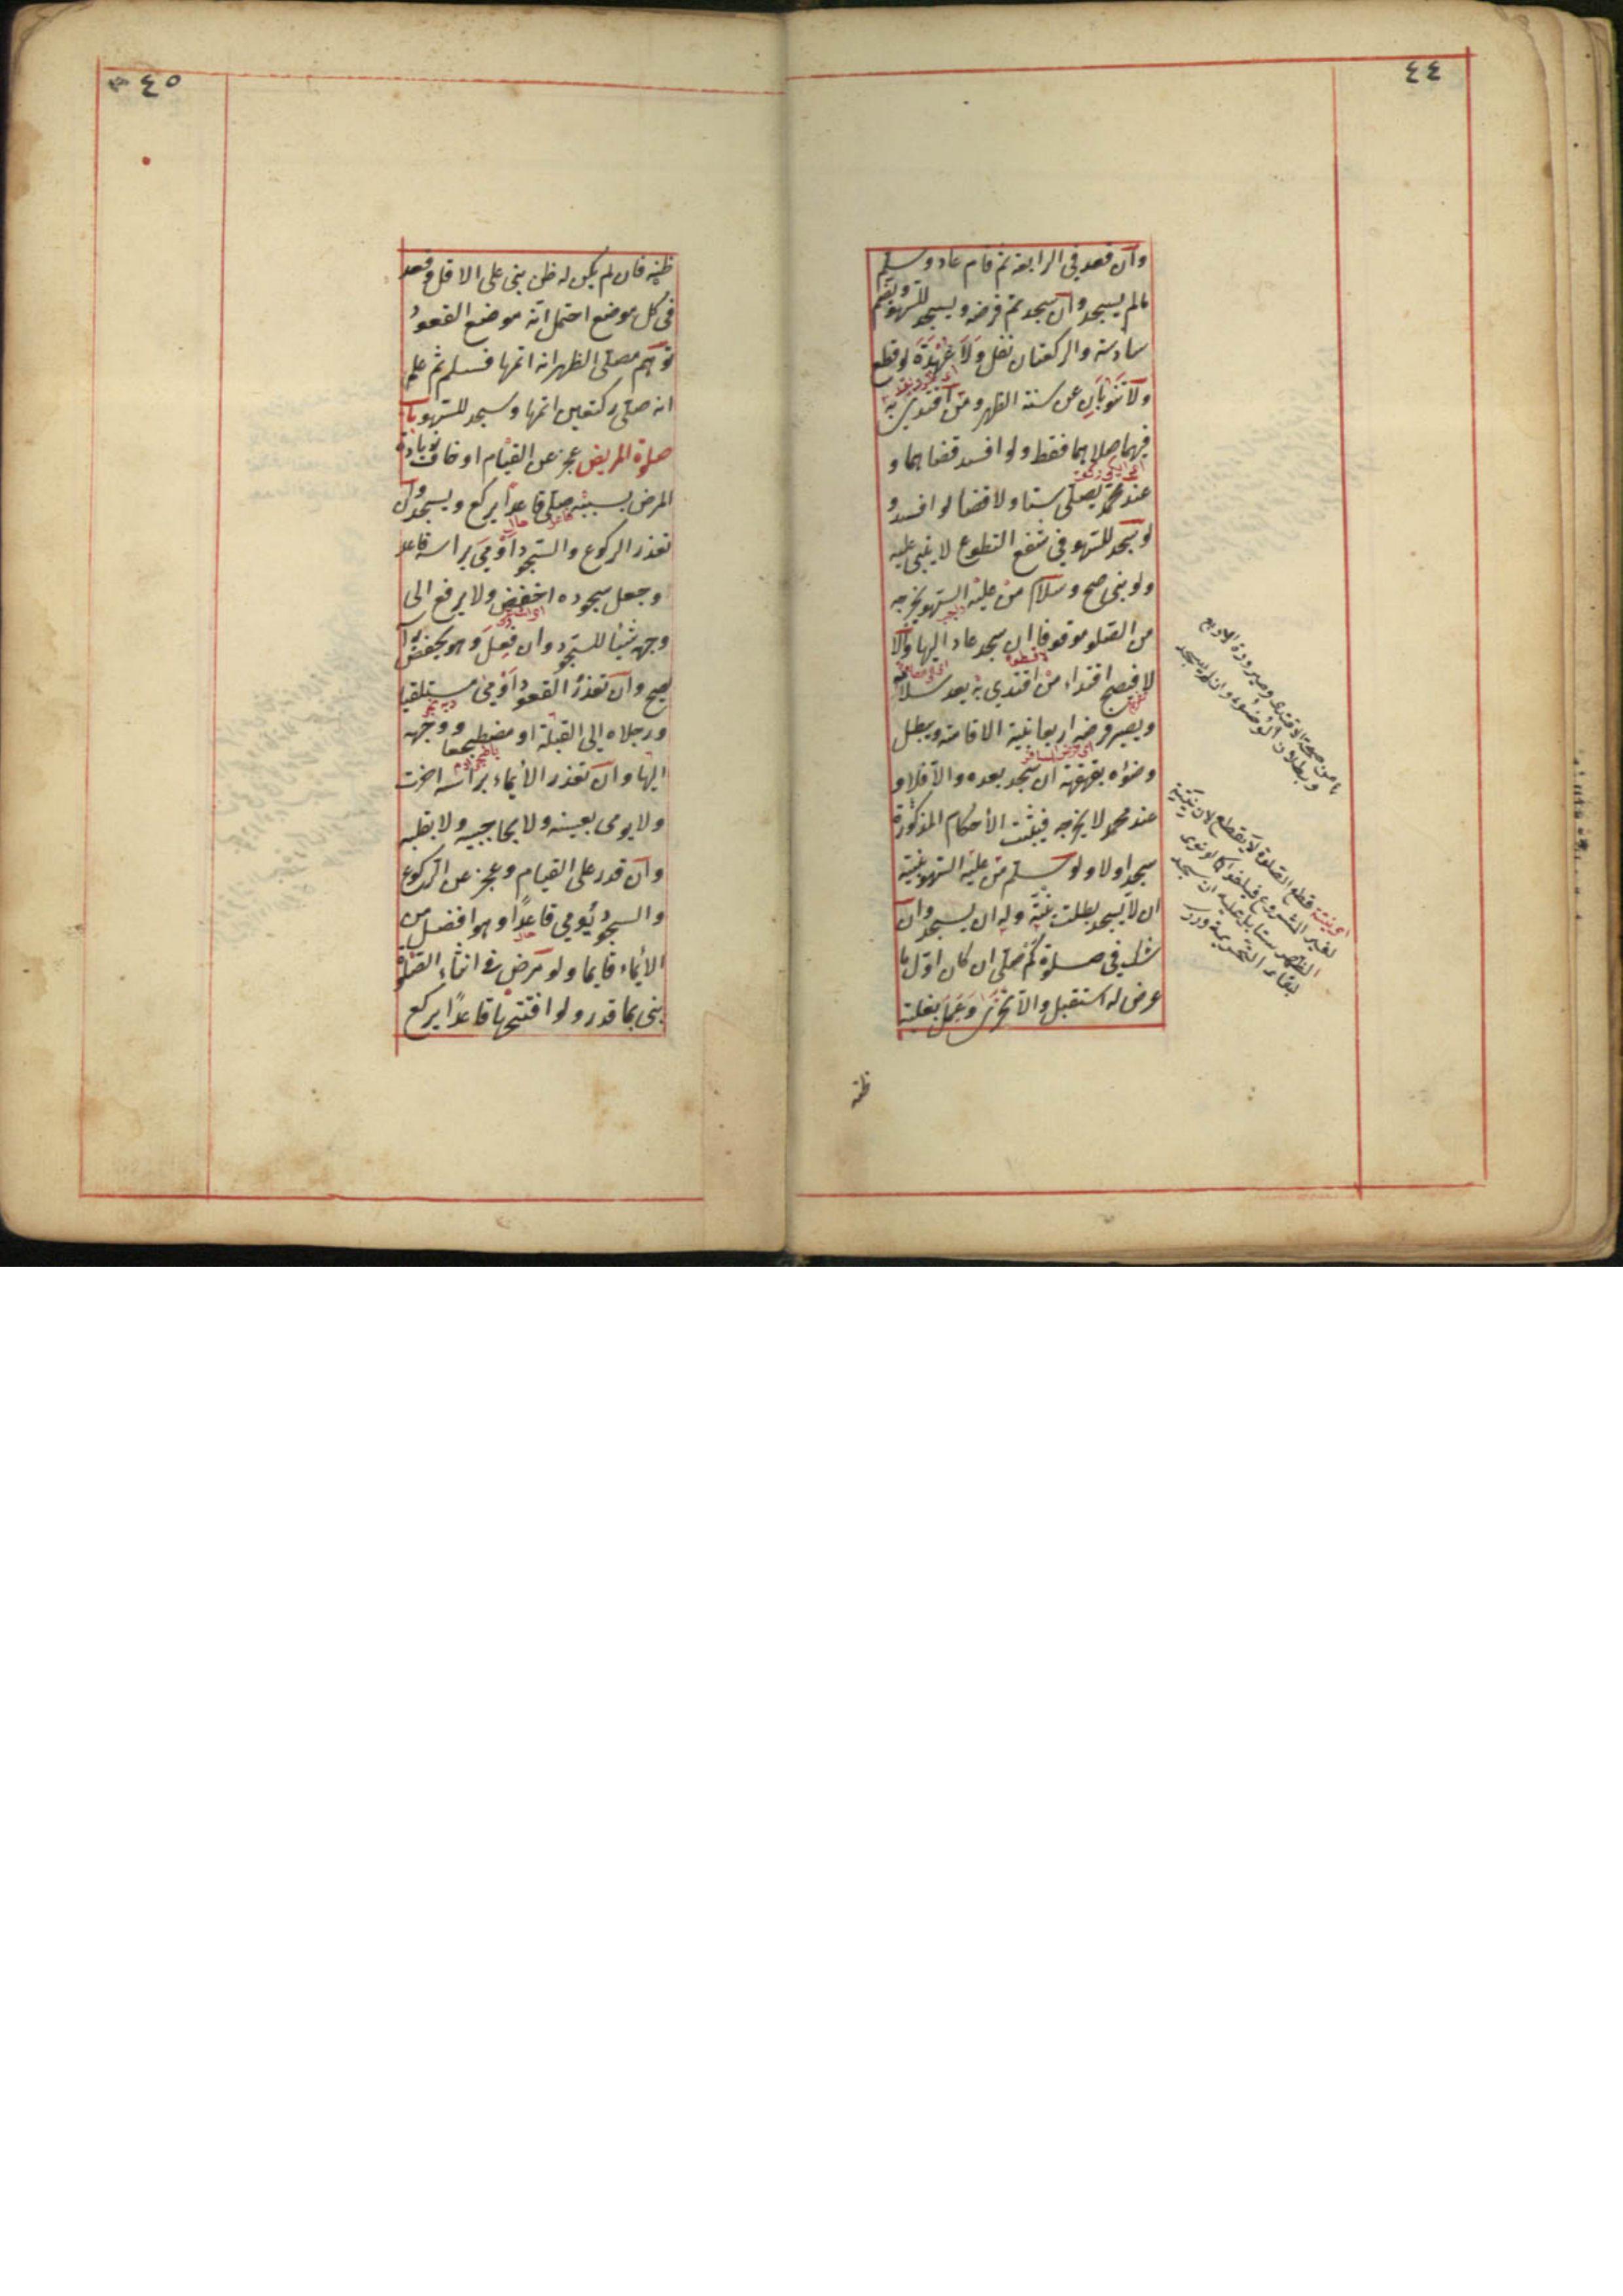 ٤٤
وان قعد في الرابعة ثم قام عاد وسلم
مالم يسجد وان سجد تم فرضه ويسجد للسهو ويضم
سادسة والركعتان نفل ولا عهدة لو قطع
ولا تنوبان عن سنة الظهر ومن اقتدى به
فيهما صلاهما فقط ولو افسد قضاهما و
عند محمد يصلي ستا ولا قضا لو افسد و
لو سجد للسهو في شفع التطوع لا يبني عليه
ولو بنى صح وسلام من عليه السهو يخرجه
من الصلوة موقوفا ان سجد عاد اليها والا
لا فيصح اقتداء من اقتدي به بعد سلامه
ويصير فرضه اربعا بنية الاقامة ويبطل
وضوءه بقهقهة ان سجد بعده والا فلا و
عند محمد لا يخرجه فيثبت الأحكام المذكورة
سجد اولا ولو سلم من عليه السهو بنية
ان لا يسجد بطلت نيته وله ان يسجد وان
شك في صلوة كم صلى ان كان اول ما
عرض له استقبل والا تحرى وعمل بغلبة
ظنه
ما من صحة الاقتداء وصيرورة الاربع
وبطلان الوضوء وان لم يسجد
اي بنية قطع الصلوة لا يقطع لان نيته
لغير المشروع فيلغو كما لو نوى
الظهر ستا بل عليه ان يسجد
لبقاء التحريمة درر
٤٥
ظنه فان لم يكن له ظن بنى على الاقل وقعد
في كل موضع احتمل انه موضع القعود
توهم مصلي الظهر انه اتمها فسلم ثم علم
انه صلى ركعتين اتمها وسجد للسهو باب
صلوة المريض عجز عن القيام او خاف زيادة
المرض بسببه صلى قاعدا يركع ويسجد وان
تعذر الركوع والسجود أومئ براسه قاعدا
وجعل سجوده اخفض ولا يرفع الى
وجهه شيئا للسجود وان فعل وهو يخفض رأسه
صح وان تعذر القعود أومئ مستلقيا
ورجلاه إلى القبلة او مضطجعا ووجهه
اليها وان تعذر الأيماء براسه اخرت
ولا يومى بعينه ولا بحاجبيه ولا بقلبه
وان قدر على القيام وعجز عن الركوع
والسجود يومي قاعدا وهو افضل من
الأيماء قايما ولو مرض في اثناء الصلوة
بنى بما قدر ولو افتتحها قاعدا يركع